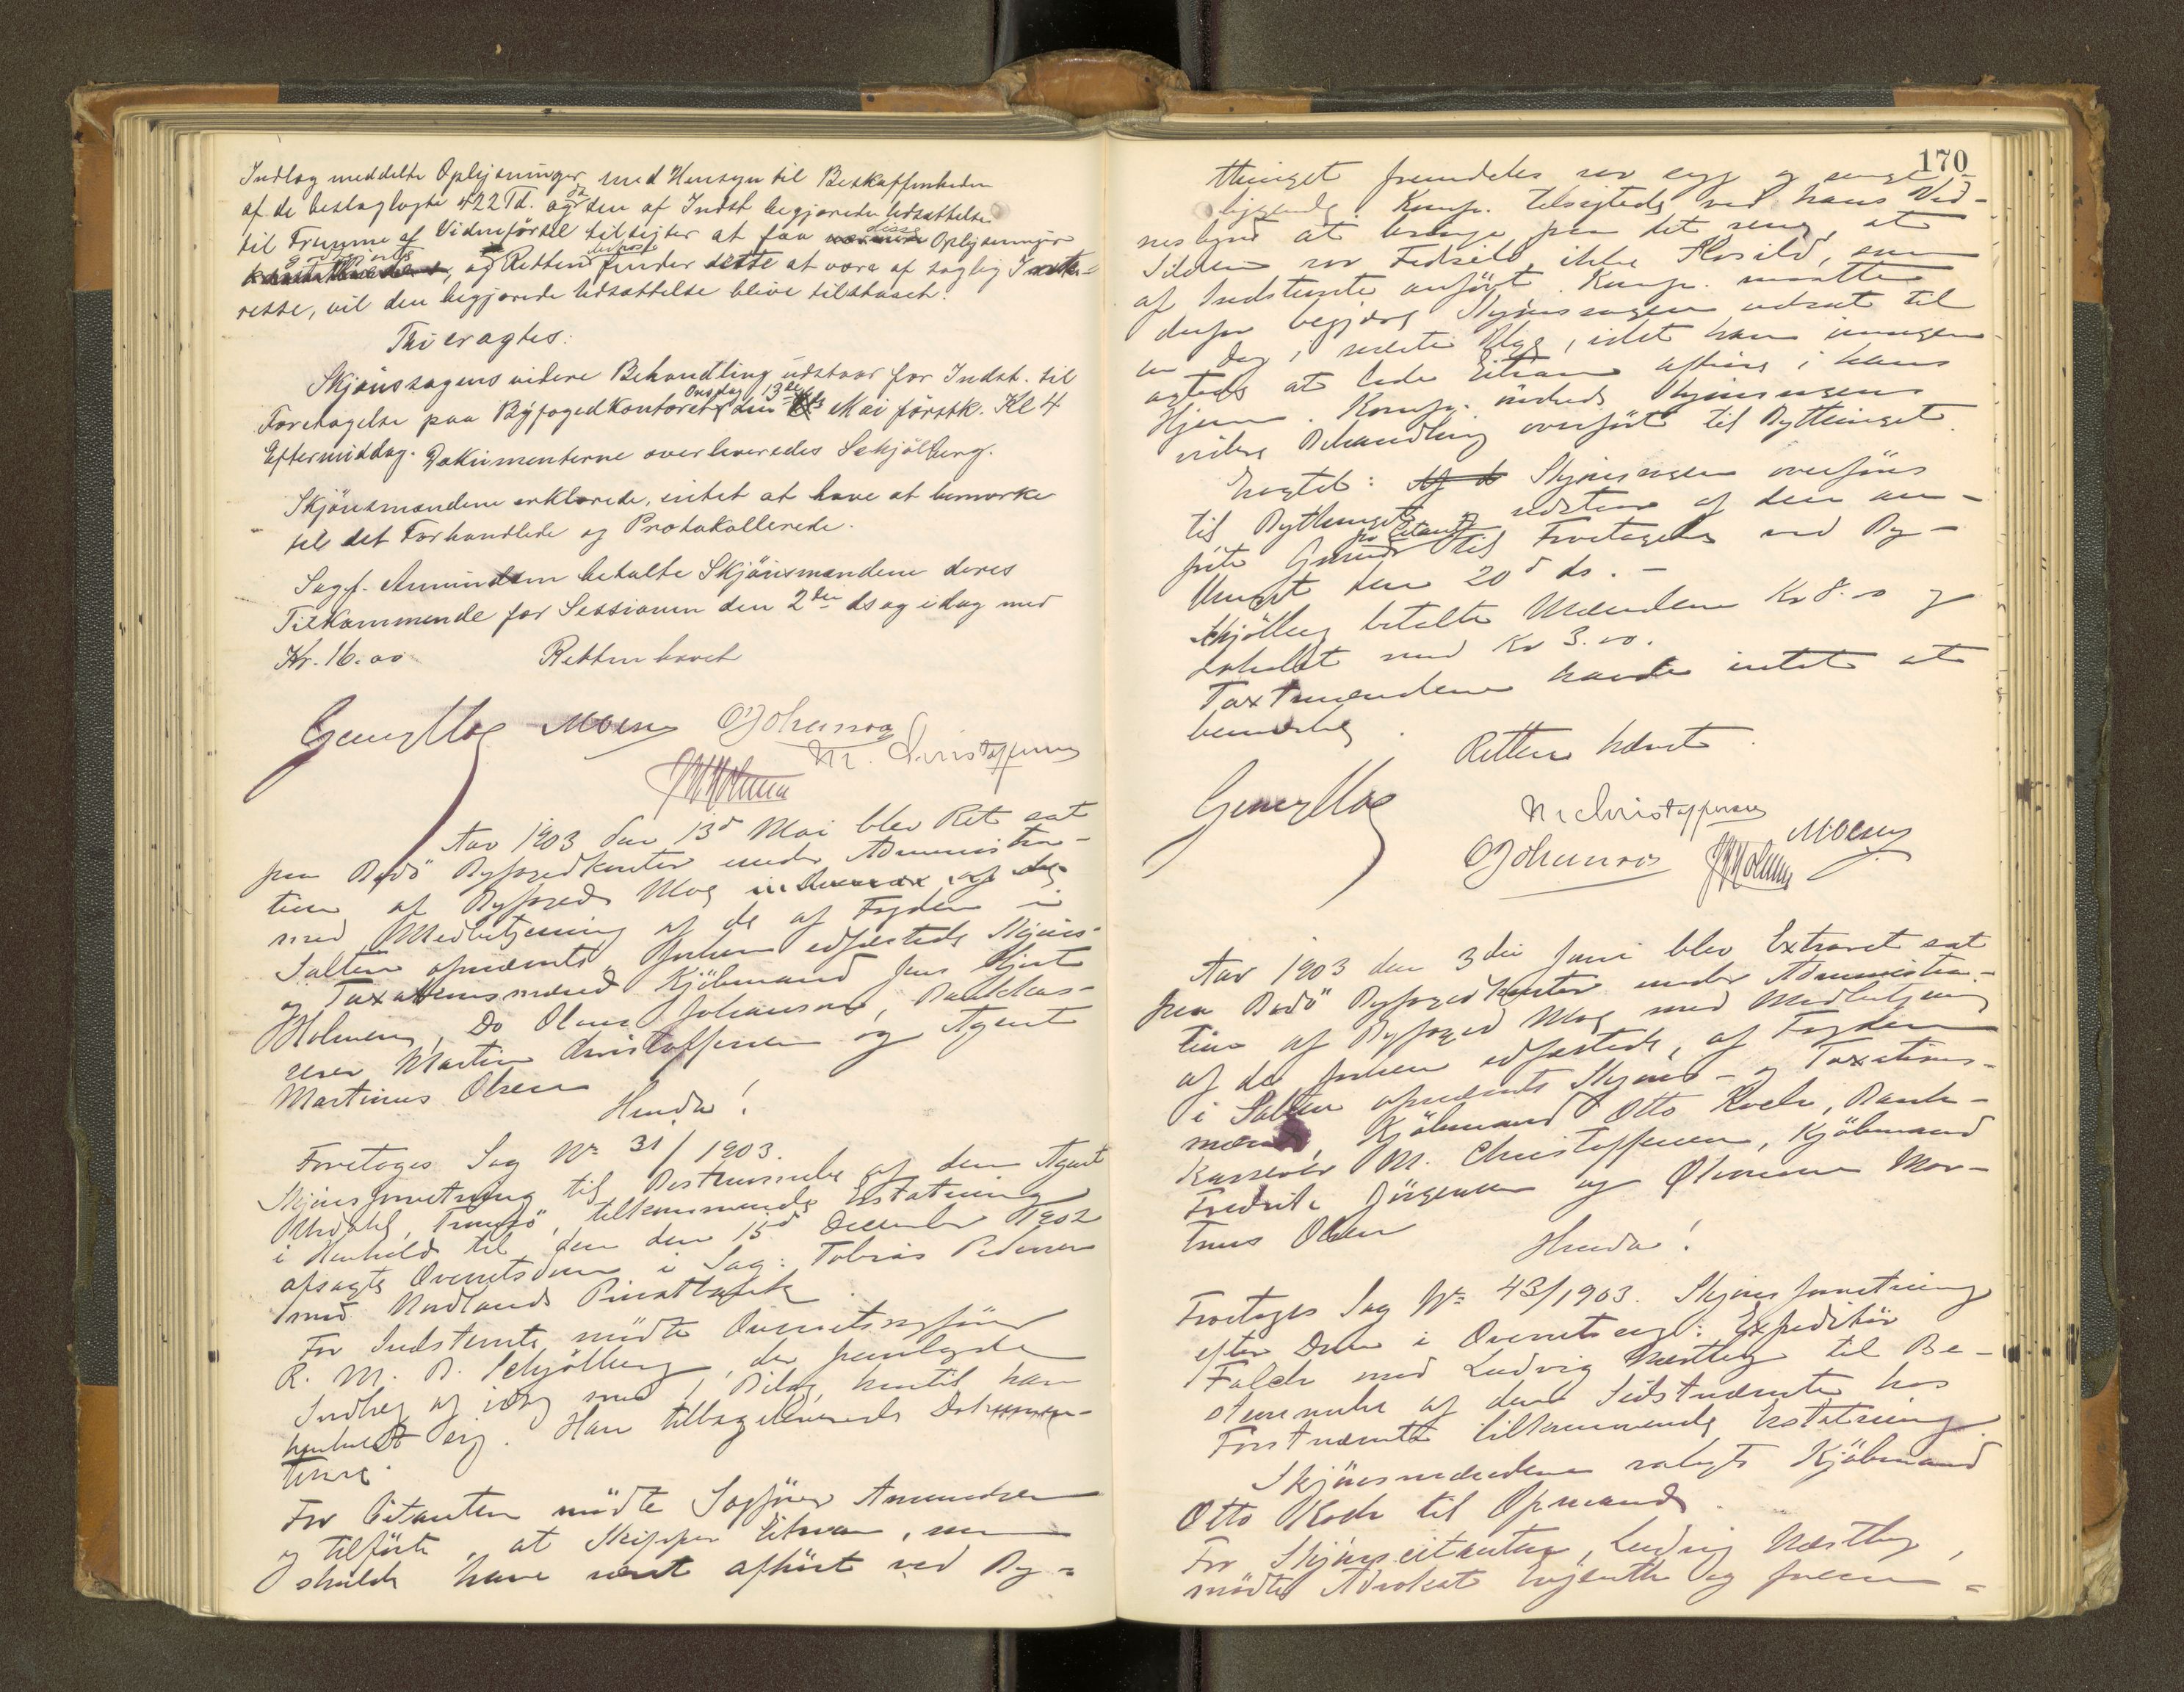 Indlæg meddelte Oplysninger med Hensyn til Beskaffenheden
af de beslaglagte 422 Td. og da den af Indst. begjærede Udsættelse
til Fremme af Vidneførsel tilsigter at faa disse Oplysninger
og Retten finder dette at være af saglig Inte-
resse, vil den begjærede Udsættelse blive tilstaaet.
Thi eragtes:
Skjønssagens videre Behandling udstaar for Indst. til
Foretagelse paa Byfogedkontoret Onsdag den 13de Mai førstk. Kl 4
Eftermiddag. Dokumenterne overleveredes Schjølberg.
Skjønsmændene erklærede, intet at have at bemærke
til det Forhandlede og Protokollerede.
Sagf. Amundsen betalte Skjønsmændene deres
Tilkommende for Sessionen den 2den ds og idag med
Kr. 16.00 Retten hævet
MOlsen OJohansen
M. Christoffersen
JHHolmen
Aar 1903 den 13d Mai blev Ret sat
paa Bodö Byfogedkontor under Administra-
tion af Byfoged Moe
med Medbetjening af de af Fogden i
Salten opnævnte, forhen edfæstede Skjøns-
og Taxationsmænd Kjöbmand Jens Hjort
Holmen, Do Olaus Johansen, Bankkas-
serer Martin Christoffersen og Agent
Martinus Olsen
Hvorda!
Foretoges Sag No 31/1903.
Skjønsforretning til Bestemmelse af den Agent
Tromsö, tilkommende Erstatning
i Henhold til den den 15d December 1902
afsagte Overretsdom i Sag: Tobias Pedersen
mod Nordlands Privatbank.
For Indstevnte mödte Overretssagförer
R. M. B. Schjölberg, der fremlagde
Indlæg af idag med 1 Bilag, hvortil han
henholdt sig. Han tilbageleverede Dokumen-
terne.
For Citanten mödte Sagförer Amundsen
og tilförte, at Skipper Eitran, som
skulde have været afhört ved By-
170
thinget fremdeles var syg og senge-
liggende. Komp. tilsigtede ved hans Vid-
nesbyrd at bringe paa det rene, at
Silden var Fedsild, ikke Slosild, som
af Indstevnte anfört. Komp. maatte
derfor begjære Skjønssagen udsat til
en Dag i næste Uge, idet han imidlertid
agtede at lade Eitran afhöre i hans
Hjem. Komp. önskede Skjønssagens
videre Behandling overfört til Bythinget.
Eragtet: Skjønssagen overföres
til Bythinget og udstaar af den an-
förte Grund for Citanten til Foretagelse ved By-
thinget den 20d ds. –
Schjölberg betalte Mændene Kr 8.00 og
Lokalet med Kr 3.00.
Taxtmændene havde intet at
bemærke.
Retten hævet
M. Christoffersen
OJohansen JHHolmen MOlsen
Aar 1903 den 3die Juni blev Extraret sat
paa Bodö Byfogedkontor under Administra-
tion af Byfoged Moe med Medbetjening
af de forhen edfæstede, af Fogden
i Salten opnævnte Skjøns- og Taxations-
mænd, Kjöbmand Otto Koch, Bank-
kasserer M. Christoffersen, Kjöbmand
Fredrik Jörgensen og Mar-
tinus Olsen
Hvorda!
Foretoges Sag No 43/1903. Skjønsforretning
efter Dom i Overretssag: Expeditör
Falch mod Ludvig Næstby til Be-
stemmelse af den Sidstnævnte hos
Förstnævnte tilkommende Erstatning.
Skjønsmændene valgte Kjöbmand
Otto Koch til Opmand.
For Skjønscitanten, Ludvig Næstby,
mödte Advokat Evjenth og frem-